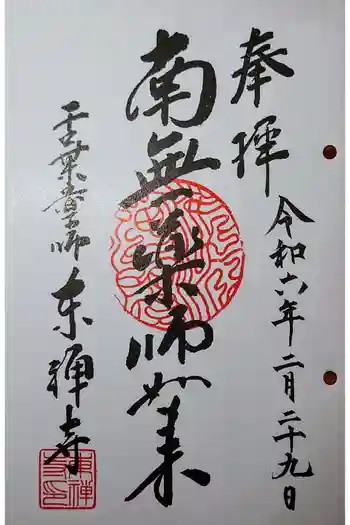 奉拝
令和六年二月二十九日
南無薬師如来
薬師 東禅寺
東禅寺印